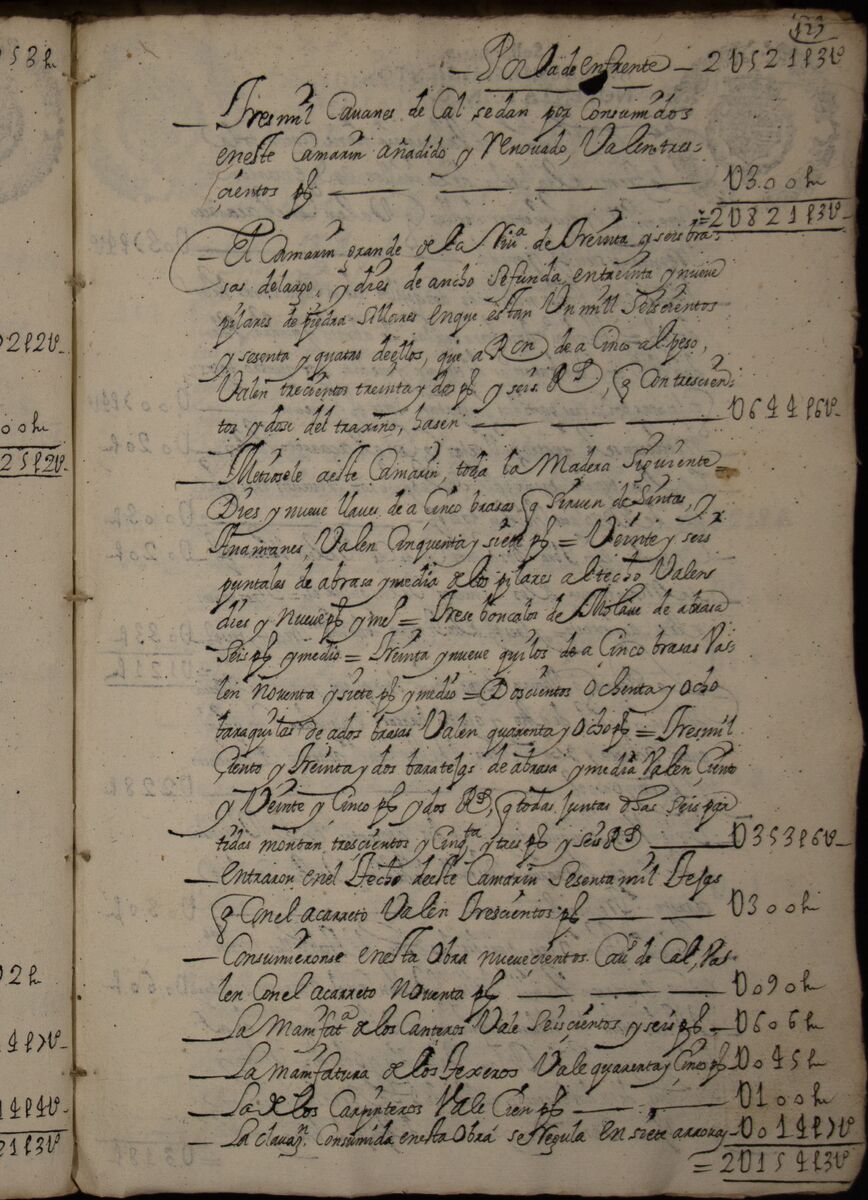 127
— Por la de enfrente — 2U521p3tt
— Tres mil Cauanes de Cal se dan por Consumidos
en este Camarin añadido y Renouado, Valen tres=
cientos ps — — — — U300h
=2U821p3tt
— El Camarin grande de la de Treinta y seis bra=
sas de largo, y dies de ancho se funda, en treinta y nueve
pilares de piedra Sillares en que estan Un mill Seiscientos
y sesenta y quatro de ellos, que a Ron de a Cinco al peso,
Valen trecientos treinta y dos ps y seis Rs, q Con trescien=
tos y dose del traxino, hasen — — — U644p6tt
— Metiosele a este Camarin, toda la Madera Siguiente=
Dies y nueve llaves de a Cinco brasas q Sirven de Sintas, y
Anamanes, Valen Cinquenta y siete ps = Veinte y seis
puntales de a brasa y media de los pilares al techo Valen
dies y nueve ps y mo = Trese boncalos de Molaue de a brasa
Seis ps y medio = Treinta y nueve quilos de a Cinco brasas Va=
len Noventa y siete ps y medio = Doscientos Ochenta y Ocho
taraquitas de a dos brasas Valen quarenta y Ocho ps = Tres mil
Ciento y Treinta y dos baratejas de a brasa y media Valen Ciento
y Veinte y Cinco ps y dos Rs, q todas Juntas dhas seis par
tidas montan, trescientos y Cinqta y tres ps y seis Rs — U353p6tt
— Entraron en el Techo de este Camarin Sesenta mil Tejas
q Con el acarreto Valen Trescientos ps — — — U300h
— Consumieronse en esta Obra nuevecientos Caus de Cal, Va=
len Con el acarreto Noventa ps — — — — U090h
— La Manifata de los Canteros Vale Seiscientos y seis ps — U606h
— La Manifatura de los Texeros Vale quarenta y Cinco ps — U045h
— La de los Carpinteros Vale Cien ps — — — U100h
— La clavazn Consumida en esta Obra se Regula en siete arrovas — U014p7tt
=2U154p3tt